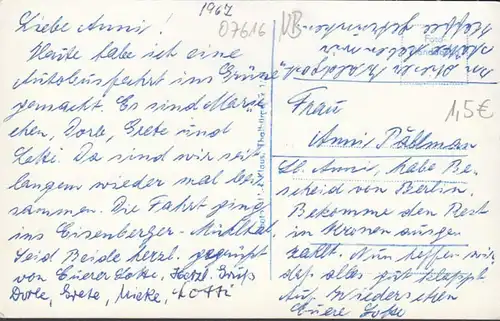 1967
07616
VB
Liebe Anni!
Heute habe ich eine
Autobusfahrt ins Grüne
gemacht. Es sind Mari
chen, Dorle, Grete und
Lotti. Da sind wir seit
langem wieder mal bei
sammen. Die Fahrt ging
ins Eisenberger-Mühltal.
Seid Beide herzl. gegrüßt
von Eurer Lotte. Herzl. Gruß
Dorle, Grete, Mieke, Lotti
1,5€
Frau
Anni Pällman
Lb. Anni, habe Be-
scheid von Berlin.
Bekomme den Rest
in Kronen ausge
zahlt. Nun hoffen wir,
daß alles gut klappt.
Auf Wiedersehen
Euere Lotte